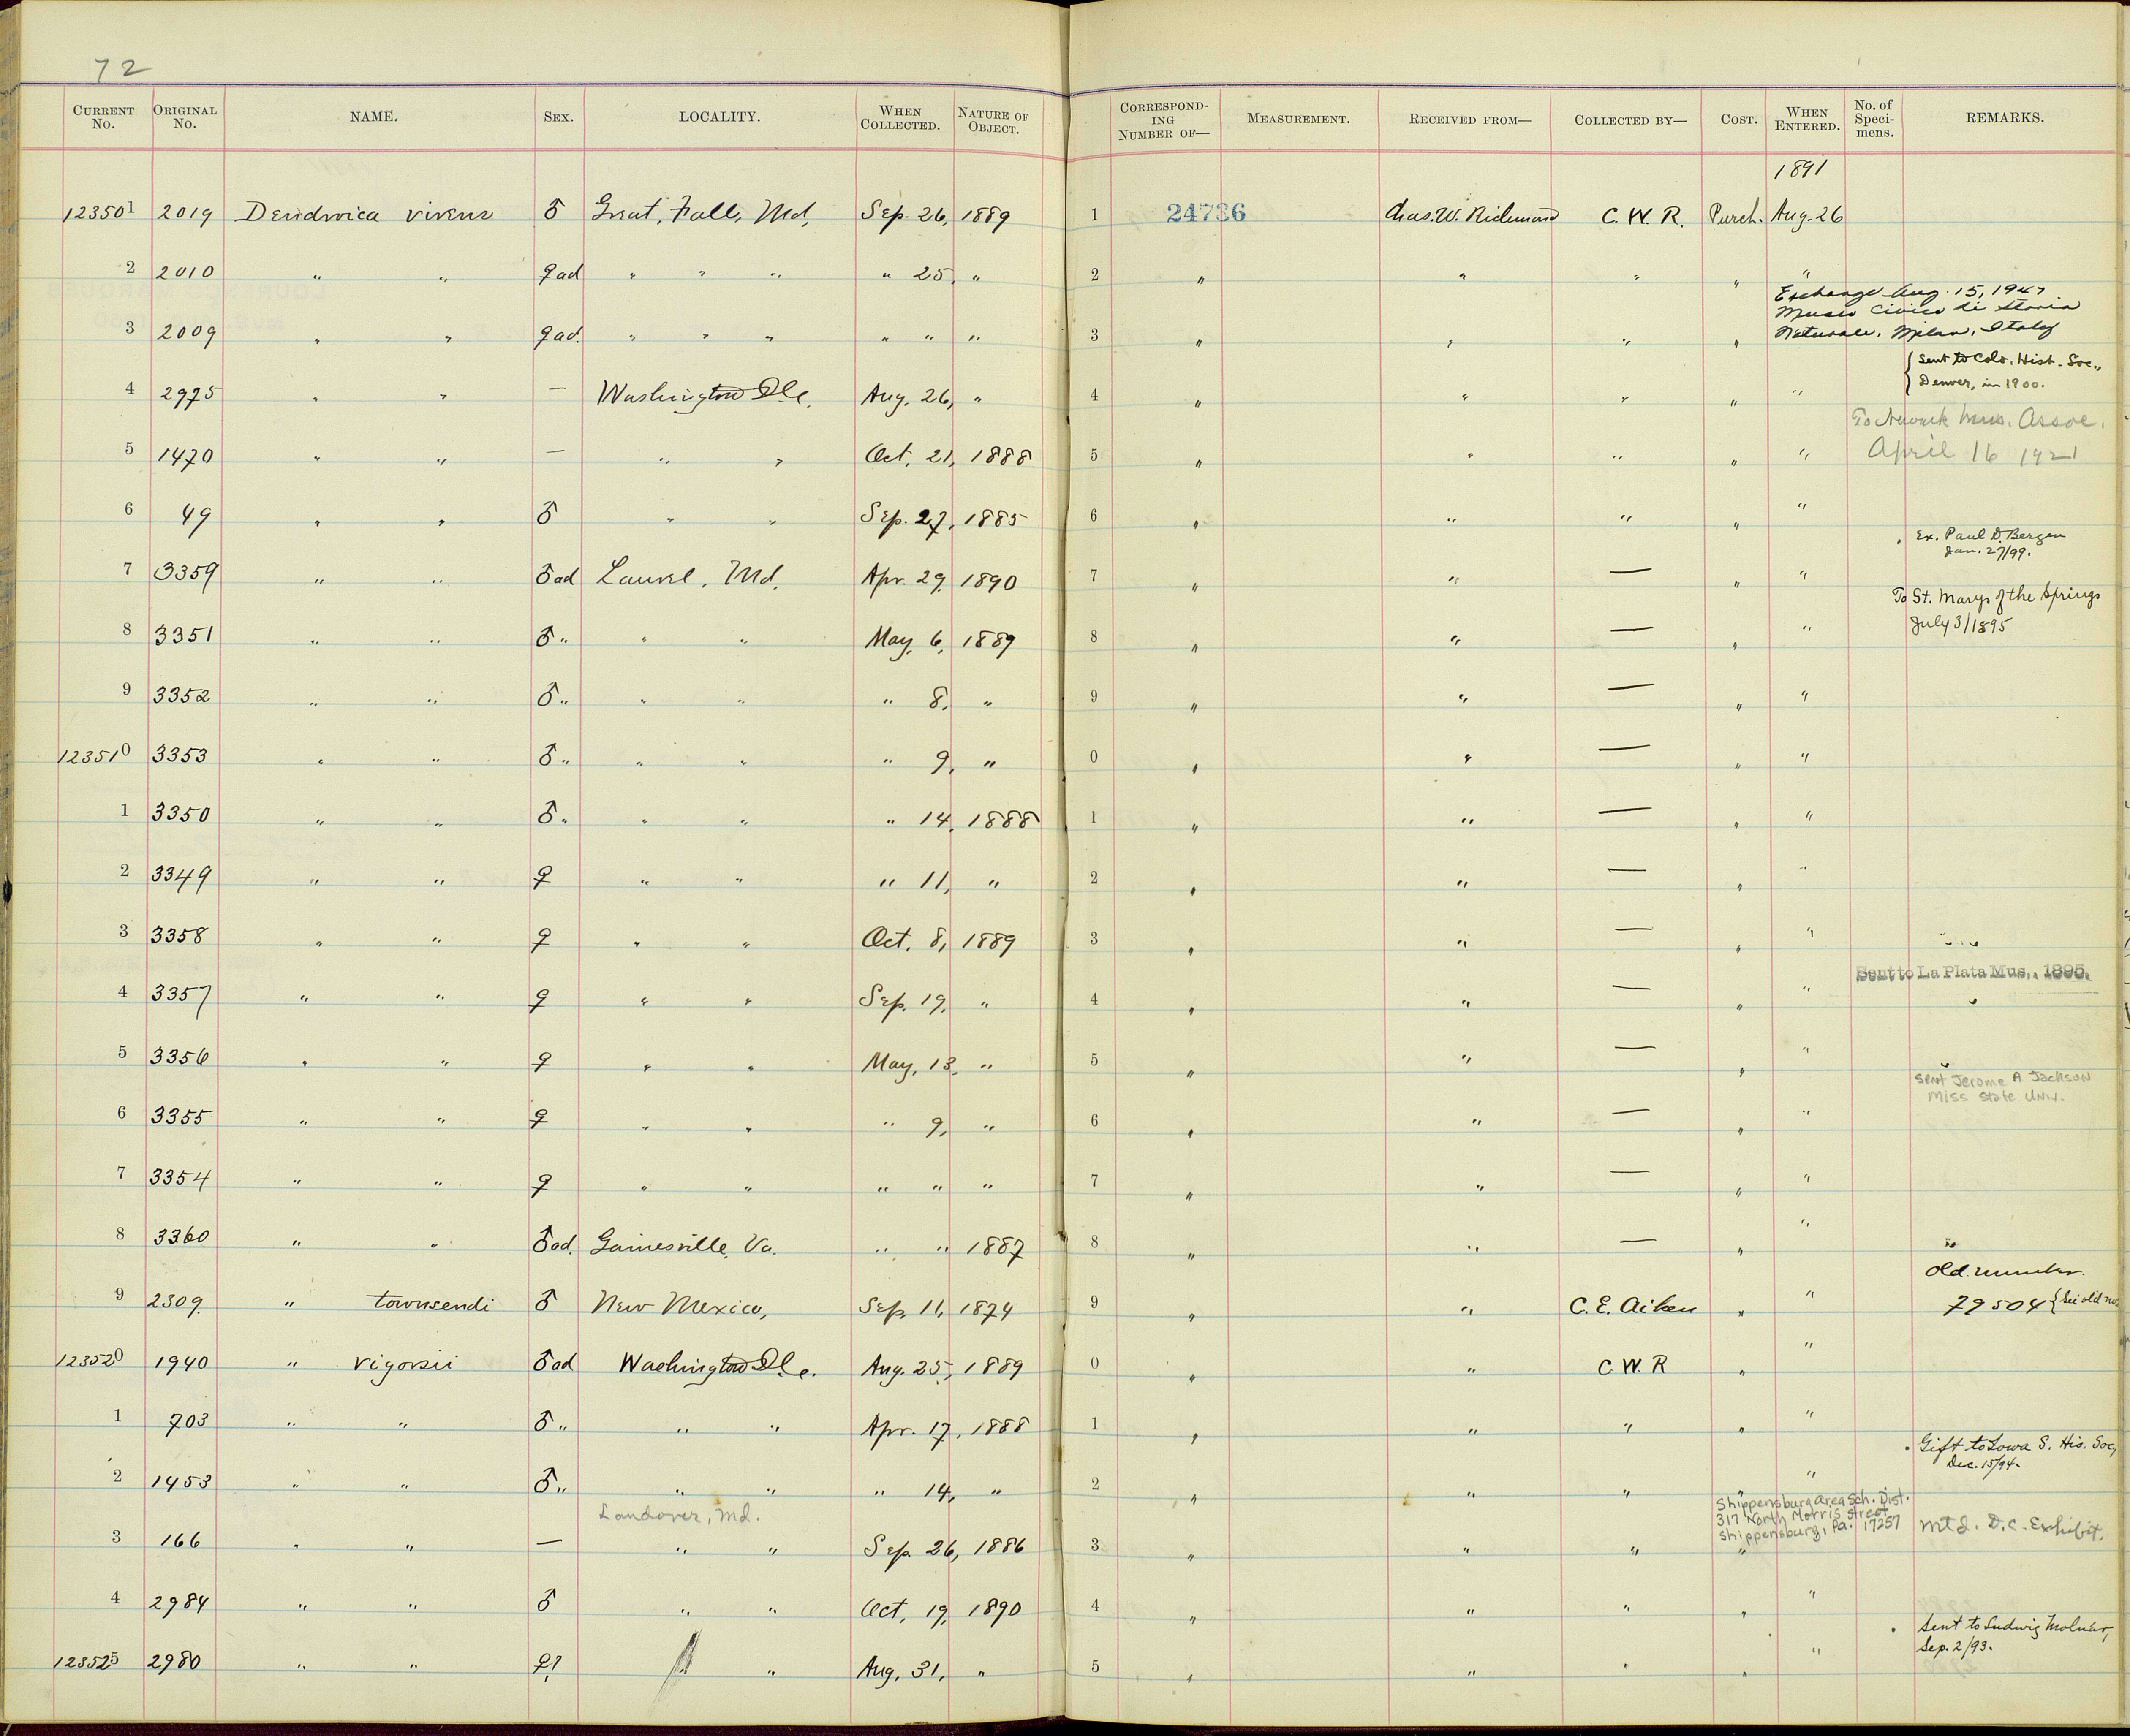 72
CURRENT No. ORIGINAL No. NAME. SEX. LOCALITY. WHEN COLLECTED. NATURE OF OBJECT. CORRESPONDING NUMBER OF— MEASUREMENT. RECEIVED FROM— COLLECTED BY— COST. WHEN ENTERED. No. of Specimens. REMARKS.
1891
123501 2019 Dendroica virens ♂ Great Falls, Md, Sep. 26, 1889 1 24736 Chas. W. Richmond C. W. R. Purch. Aug. 26
2 2010 " " ♀ ad " " " " 25, " 2 " " " " "
Exchange Aug. 15, 1947
Museo Civico di Storia
Naturale, Milan, Italy
3 2009 " " ♀ ad. " " " " " " 3 " " " "
{ Sent to Colo. Hist. Soc.,
Denver, in 1900.
4 2975 " " — Washington D.C. Aug. 26, " 4 " " " " "
To Newark Mus. Assoc.
April 16 1921
5 1470 " " — " " Oct. 21, 1888 5 " " " " "
6 49 " " ♂ " " Sep. 27, 1885 6 " " " " "
Ex. Paul D. Bergen
Jan. 27/99.
7 3359 " " ♂ ad Laurel, Md. Apr. 29, 1890 7 " " — " "
To St. Marys of the Springs
July 3/1895
8 3351 " " ♂ " " " May, 6, 1889 8 " " — " "
9 3352 " " ♂ " " " " 8, " 9 " " — " "
123510 3353 " " ♂ " " " " 9, " 0 " " — " "
1 3350 " " ♂ " " " " 14, 1888 1 " " — " "
2 3349 " " ♀ " " " 11, " 2 " " — " "
3 3358 " " ♀ " " Oct. 8, 1889 3 " " — " "
Sent to La Plata Mus., 1895.
4 3357 " " ♀ " " Sep. 19, " 4 " " — " "
5 3356 " " ♀ " " May, 13, " 5 " " — " "
Sent Jerome A Jackson
Miss State Univ.
6 3355 " " ♀ " " " 9, " 6 " " — " "
7 3354 " " ♀ " " " " " 7 " " — " "
8 3360 " " ♂ ad. Gainesville, Va. " " 1887 8 " " — " "
Old number
9 2309 " townsendi ♂ New Mexico, Sep. 11, 1874 9 " " C. E. Aiken " " 79504 { See old no
123520 1940 " vigorsii ♂ ad Washington D.C. Aug. 25, 1889 0 " " C. W. R " "
1 703 " " ♂ " " " Apr. 17, 1888 1 " " " " "
Gift to Iowa S. His. Soc,
Dec. 15/94.
2 1453 " " ♂ " " " " 14, " 2 " " " " "
Landover, Md.
Shippensburg Area Sch. Dist.
317 North Morris Street
Shippensburg, Pa. 17257
Mtd. D.C. Exhibit.
3 166 " " — " " Sep. 26, 1886 3 " " " "
4 2984 " " ♂ " " Oct, 19, 1890 4 " " " " "
Sent to Ludwig Molnar,
Sep. 2/93.
123525 2980 " " ♀? " Aug. 31, " 5 " " " " "